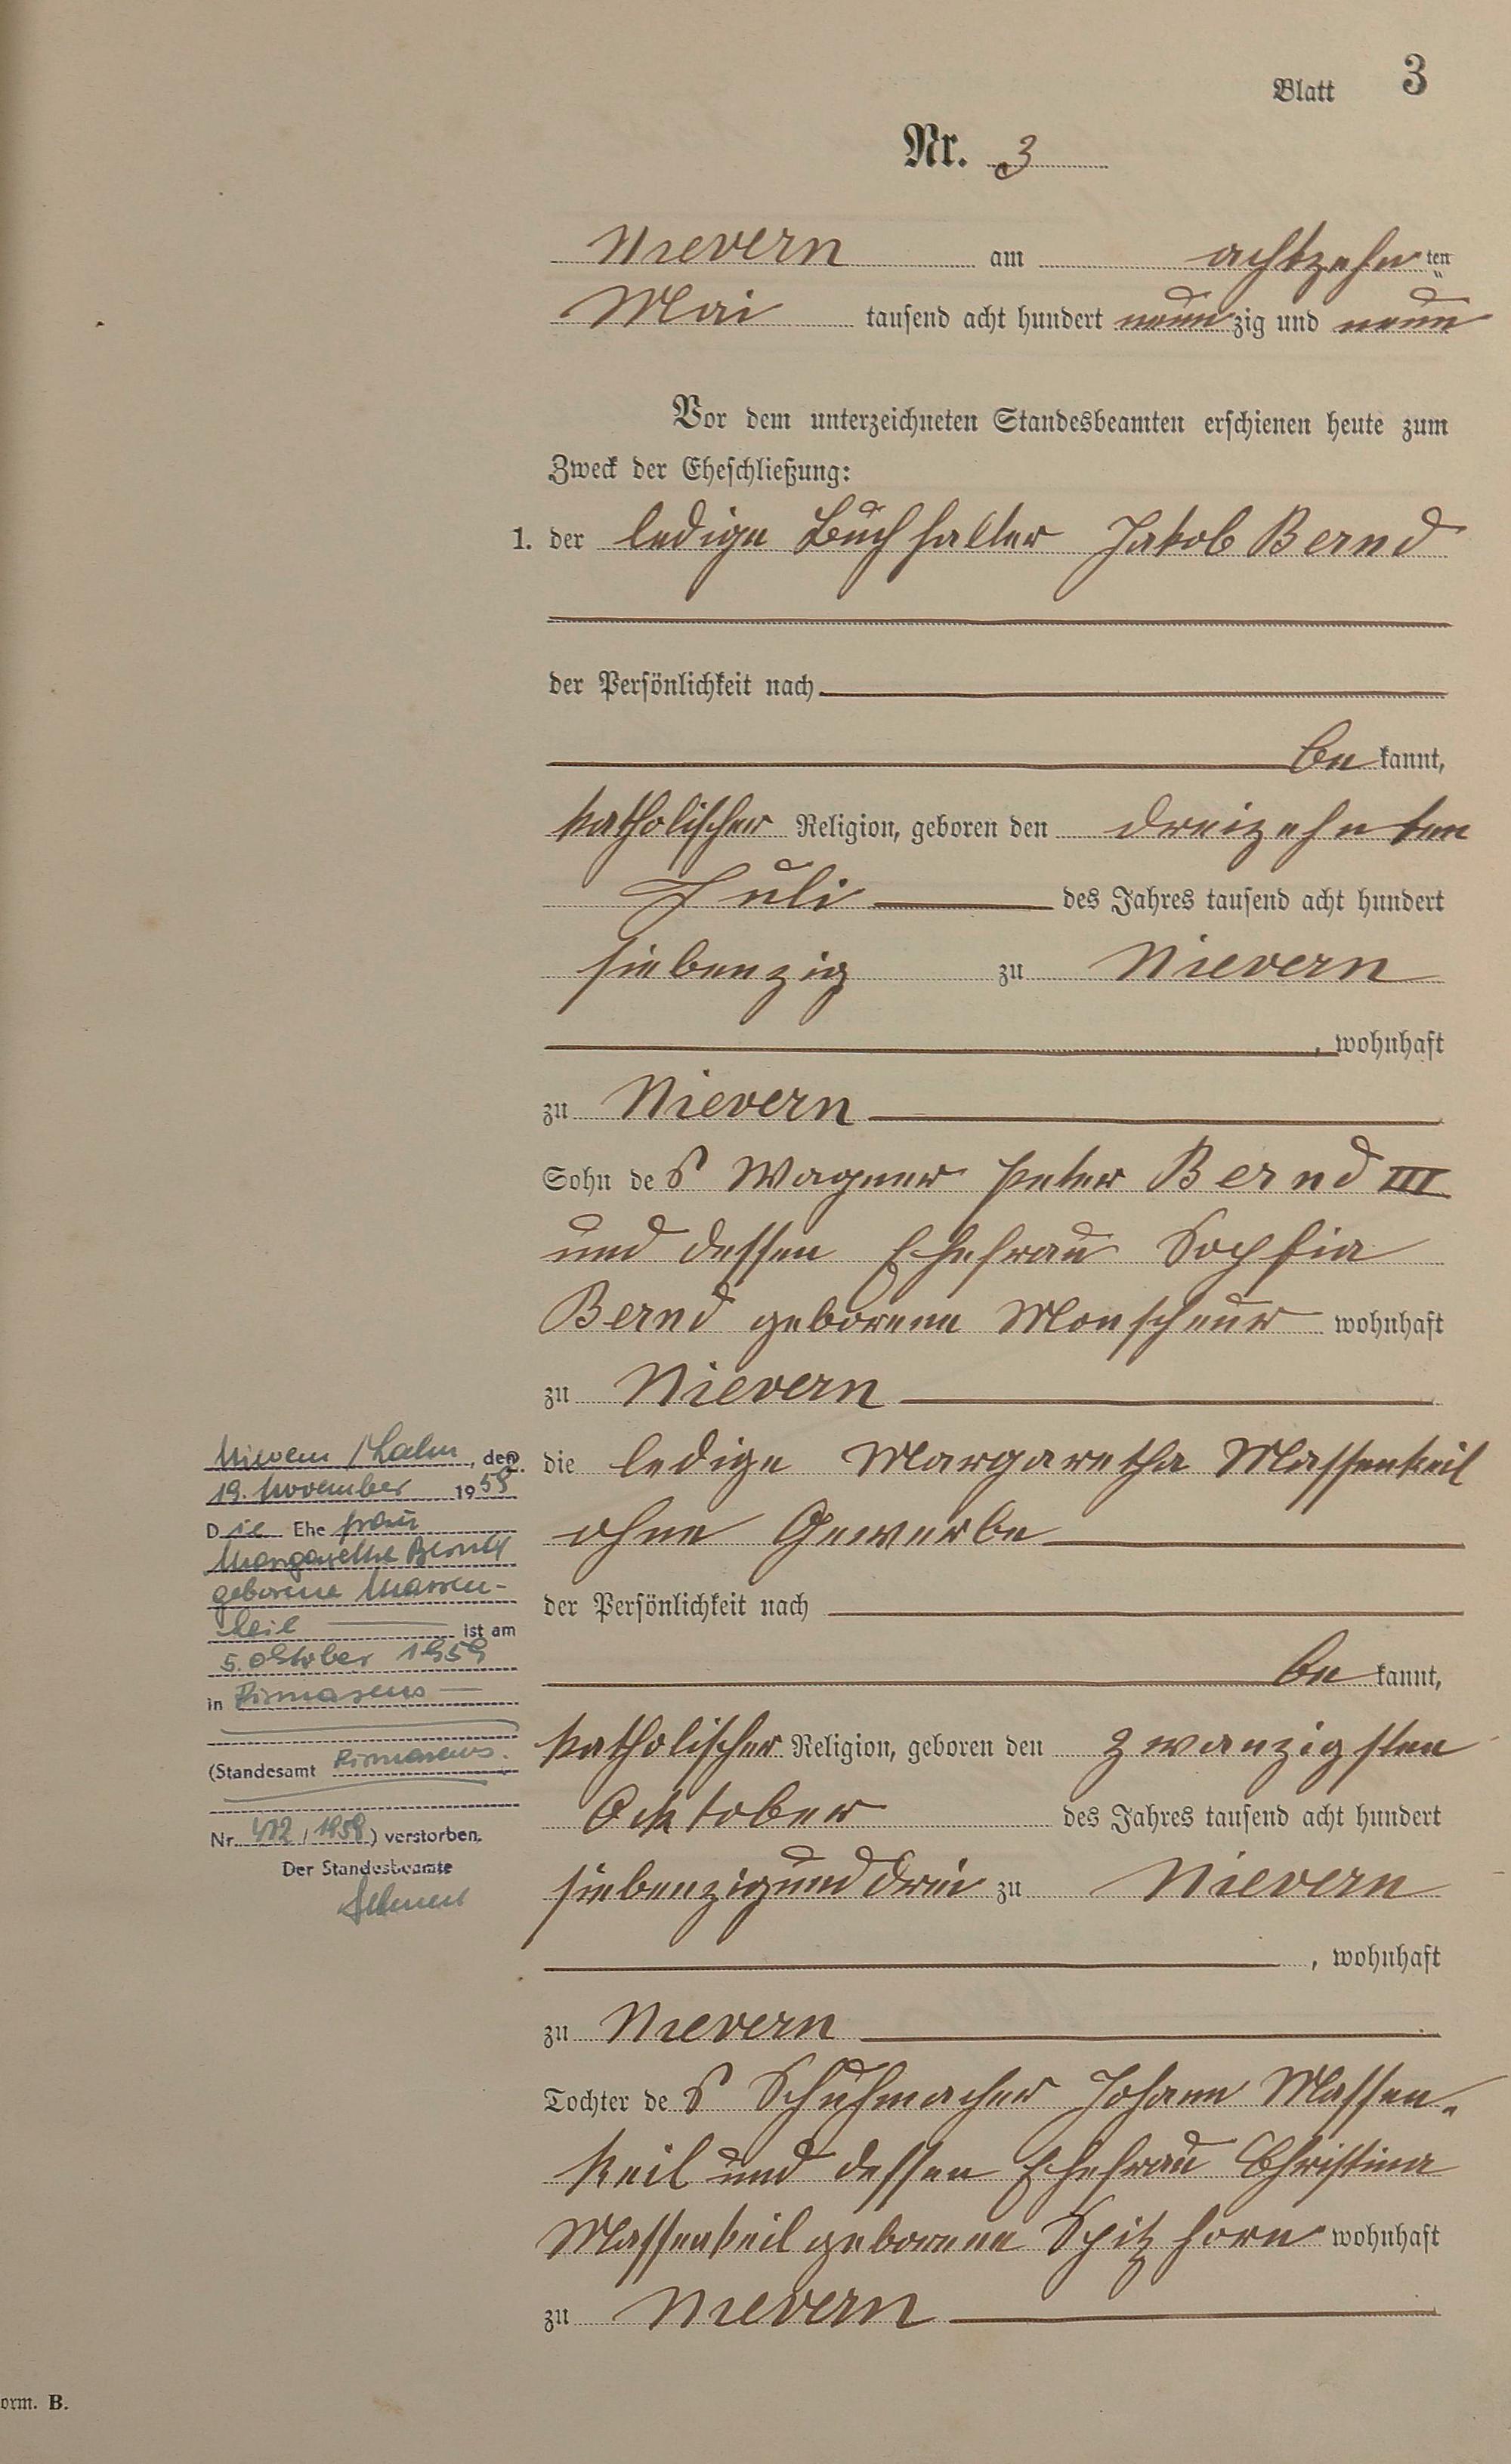 Blatt 3
Nr. 3
Nievern am achtzehn ten
Mai tausend acht hundert neun zig und neun
Vor dem unterzeichneten Standesbeamten erschienen heute zum
Zweck der Eheschließung:
1. der ledige Buchhalter Jakob Bernd
der Persönlichkeit nach
be kannt,
katholischer Religion, geboren den dreizehnten
Juli des Jahres tausend acht hundert
siebenzig zu Nievern
, wohnhaft
zu Nievern
Sohn des Wagner Peter Bernd III
und dessen Ehefrau Sophia
Bernd geborene Monscheuer wohnhaft
zu Nievern
2. die ledige Margaretha Massenkeil
ohne Gewerbe
der Persönlichkeit nach
be kannt,
katholischer Religion, geboren den zwanzigsten
Oktober des Jahres tausend acht hundert
siebenzig und drei zu Nievern
, wohnhaft
zu Nievern
Tochter des Schuhmacher Johann Massen-
keil und dessen Ehefrau Christina
Massenkeil geborene Spitzhorn wohnhaft
zu Nievern
Nievern / Lahn, den
19. November 1959
Die Ehe frau
Margarethe Bernd
geborene Massen-
keil ist am
5. Oktober 1959
in Pirmasens
(Standesamt Pirmasens
Nr. 412 / 1959) verstorben.
Der Standesbeamte
orm. B.